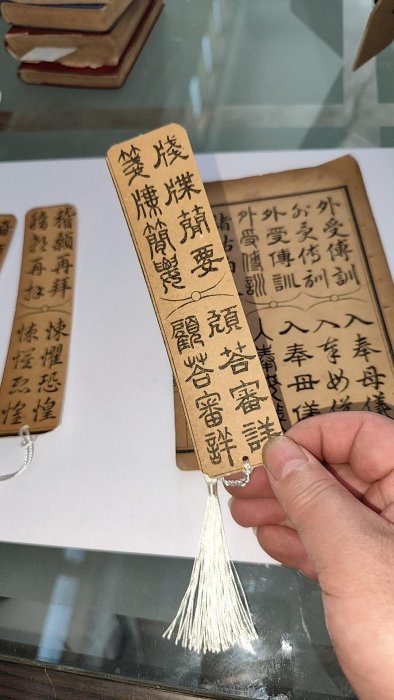 牋牒簡要
箋牒簡要
顧荅審詳
顧荅審詳
稽顙再拜
稽顙再拜
悚懼恐惶
悚懼恐惶
外受傳訓
外受傳訓
外受傳訓
外受傳訓
入奉母儀
入奉母儀
入奉母儀